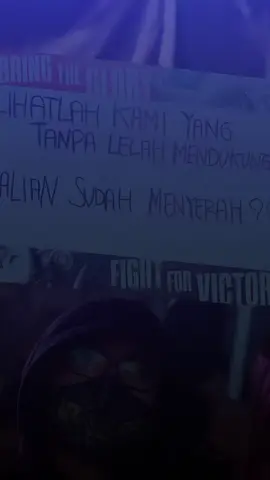 BRING THE GLORY
LIHATLAH KAMI YANG
TANPA LELAH MENDUKUNG
ALIAN SUDAH MENYERAH ?
FIGHT FOR VICTOR